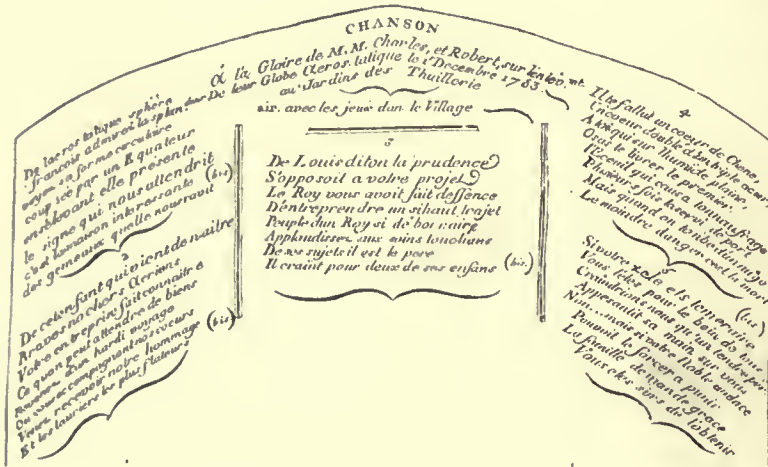 CHANSON
á la Gloire de M.M. Charles, et Robert, sur l'enlev. mt.
De leur Globe Aeros.tatique le 1 Decembre 1783
au Jardins des Thuillerie
air. avec les jeux dans le Village
De lacrostatique sphére
francois admirez la splendeur
voyez sa forme circulaire
coup scé par un Equateur
en s'elevant elle présente
le signe qui nous attendrit (bis)
c'est la maison interessante
des gemeaux quelle nourravit
2
De cet enfant qui vient de naitre
Braves nochers Aeriens
Votre entreprise fait connaitre
Ce quon peut attendre de biens
Revenez d'un hardi voyage
Ou vous accompagnent nos coeurs
Venez recevoir notre hommage (bis)
Et les lauriers les plus flateurs
3
De Louis diton la prudence
S'opposoit a votre projet
Le Roy vous avoit fait deffence
D'entreprendre un si haut trajet
Peuple d'un Roy si de bonnaire
Applaudissez aux soins touchans
De ses sujets il est le pere
Il craint pour deux de ses enfans (bis.)
4
Il te fallut un coeur de Chene
Un coeur double d'un triple acier
A toi qui sur l'humide plaine
Osas te livrer le premier
l'Ecceuil qui causa ton naufrage
Plusieurs fois te servit de port
Mais quand on tombe d'un nuage
Le moindre danger c'est la mort
5
Si votre zele est temeraire (bis)
Vous l'etes pour le bien de tous
Craindrions nous qu'un tendre pere
Appesantit sa main sur vous
Non....mais si votre Noble audace
Pouvoit le forcer a punir
La famille demande grace
Vous etes surs de l'obtenir